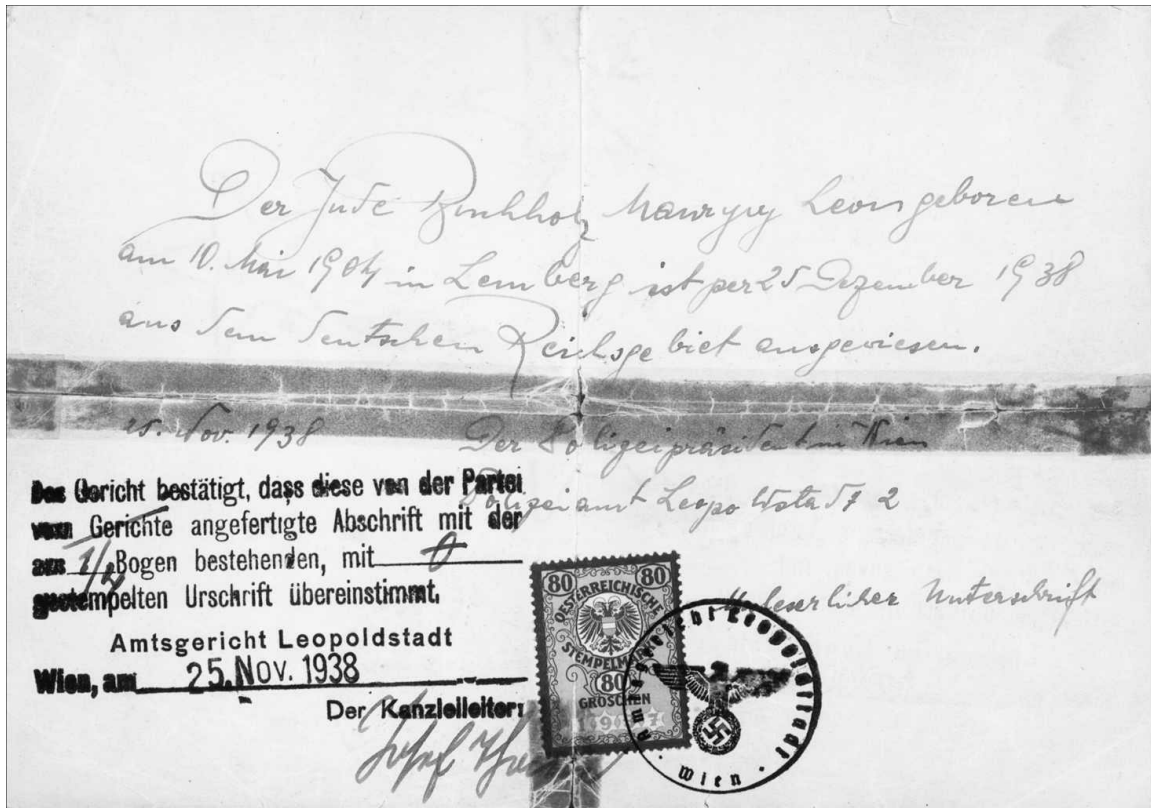 Der Jude Buchholz Maurycy Leon geboren
am 10. Mai 1904 in Lemberg ist per 25 Dezember 1938
aus dem deutschen Reichsgebiet ausgewiesen.
25. Nov. 1938 Der Polizeipräsident in Wien
Polizeiamt Leopoldstadt 2
Das Gericht bestätigt, dass diese von der Partei
vom Gerichte angefertigte Abschrift mit der
aus Bogen bestehenden, mit
gestempelten Urschrift übereinstimmt.
Unleserlicher Unterschrift
Amtsgericht Leopoldstadt
Wien, am 25. NOV. 1938
Der Kanzleileiter:
Josef
80 80
OESTERREICHISCHE
STEMPELMARKE
80
GROSCHEN
Amtsgericht Leopoldstadt
Wien